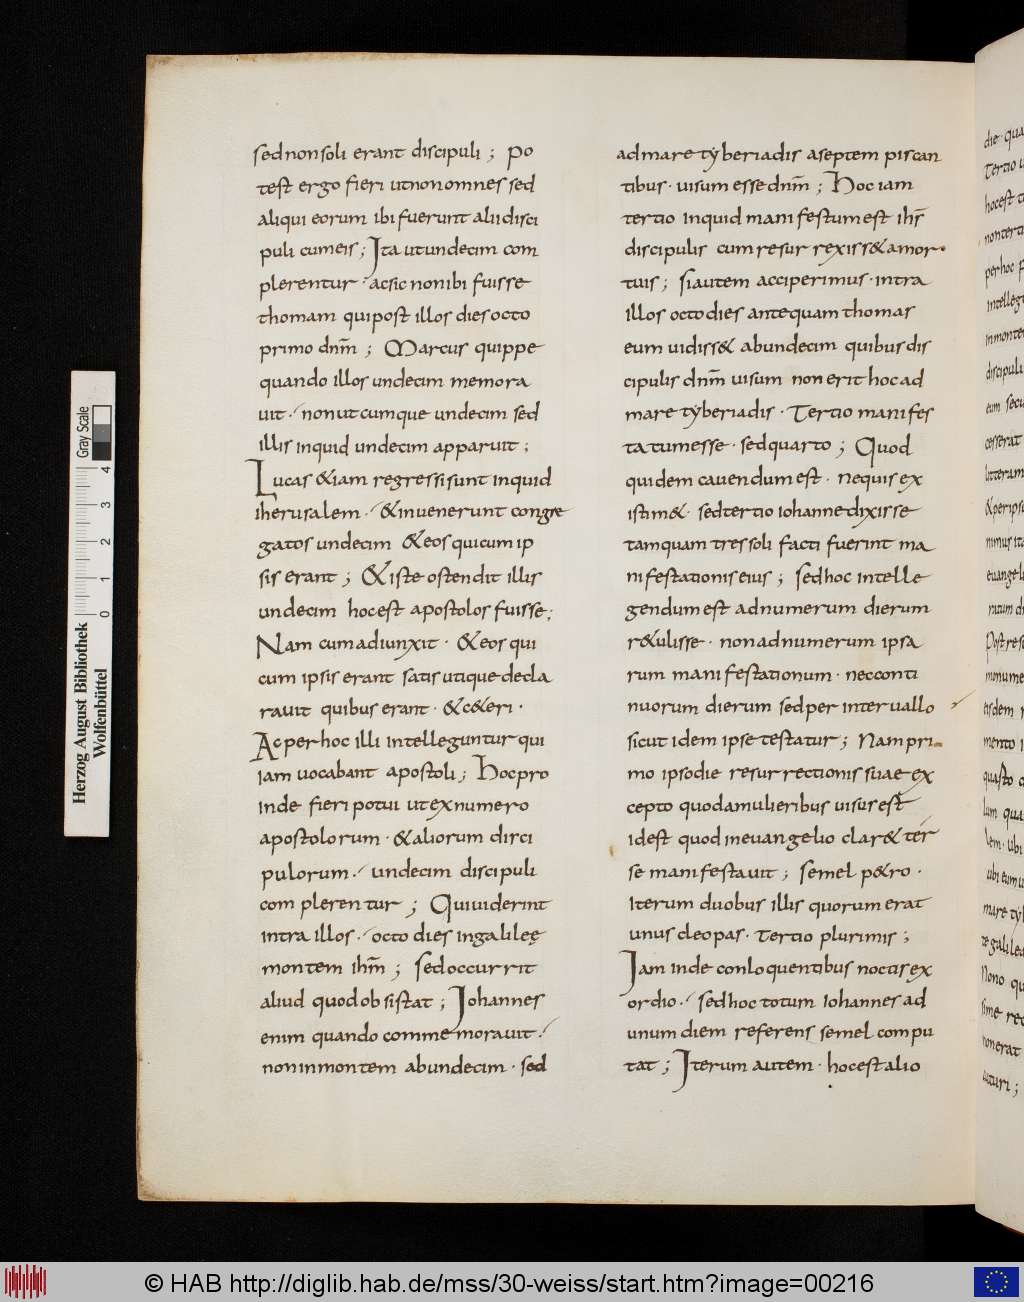 sed non soli erant discipuli ; Po
test ergo fieri ut non omnes sed
aliqui eorum ibi fuerunt alii disci
puli cum eis ; Ita ut undecim com
plerentur · ac sic non ibi fuisse
thomam qui post illos dies octo
primo dnm̄ ; Marcus quippe
quando illos undecim memora
uit · non utcumque undecim sed
illis inquid undecim apparuit ;
Lucas &iam regressi sunt inquid
iherusalem · & inuenerunt congre
gatos undecim & eos qui cum ip
sis erant ; & iste ostendit illis
undecim hoc est apostolos fuisse ;
Nam cum adiunxit · & eos qui
cum ipsis erant satis utique decla
rauit quibus erant · & c&eri ·
Ac per hoc illi intelleguntur qui
iam uocabant apostoli ; Hoc pro
inde fieri potui ut ex numero
apostolorum · & aliorum dirci
pulorum · undecim discipuli
complerentur ; Qui uiderint
intra illos · octo dies in galileę
montem ihm̄ ; sed occurrit
aliud quod obsistat ; Iohannes
enim quando commemorauit ·
non in montem ab undecim · sed
ad mare tyberiadis a septem piscan
tibus · uisum esse dnm̄ ; Hoc iam
tertio inquid manifestum est ihs̄
discipulis cum resurrexiss& a mor·
tuis ; si autem acciperimus · intra
illos octo dies antequam thomas
eum uidiss& ab undecim quibus dis
cipulis dnm̄ uisum non erit hoc ad
mare tyberiadis · Tertio manifes
tatum esse · sed quarto ; Quod
quidem cauendum est · ne quis ex
istim& · sed tertio iohanne dixisse
tamquam tres soli facti fuerint ma
nifestationis eius ; sed hoc intelle
gendum est ad numerum dierum
r&ulisse · non ad numerum ipsa
rum manifestationum · nec conti
nuorum dierum sed per interuallo
sicut idem ipse testatur ; Nam pri
mo ipso die resurrectionis suae ex
cepto quod a mulieribus uisus est
id est quod in euangelio clar& ter
se manifestauit ; semel p&ro ·
Iterum duobus illis quorum erat
unus cleopas · tertio plurimis ;
Iam inde conloquentibus noctis ex
ordio · sed hoc totum Iohannes ad
unum diem referens semel compu
tat ; Iterum autem · hoc est alio
die · qua
tertio u
hoc est
perhoc
discipuli
eum
cesserat
litteram
nimus
euangeli
Post
eisdem
mento
quasto
lum qua
lem · ubi
ubi eum
mare
te galilea
Nono qu
sime rec
non erat
Herzog August Bibliothek
Wolfenbüttel
0 1 2 3 4
Gray Scale
© HAB http://diglib.hab.de/mss/30-weiss/start.htm?image=00216